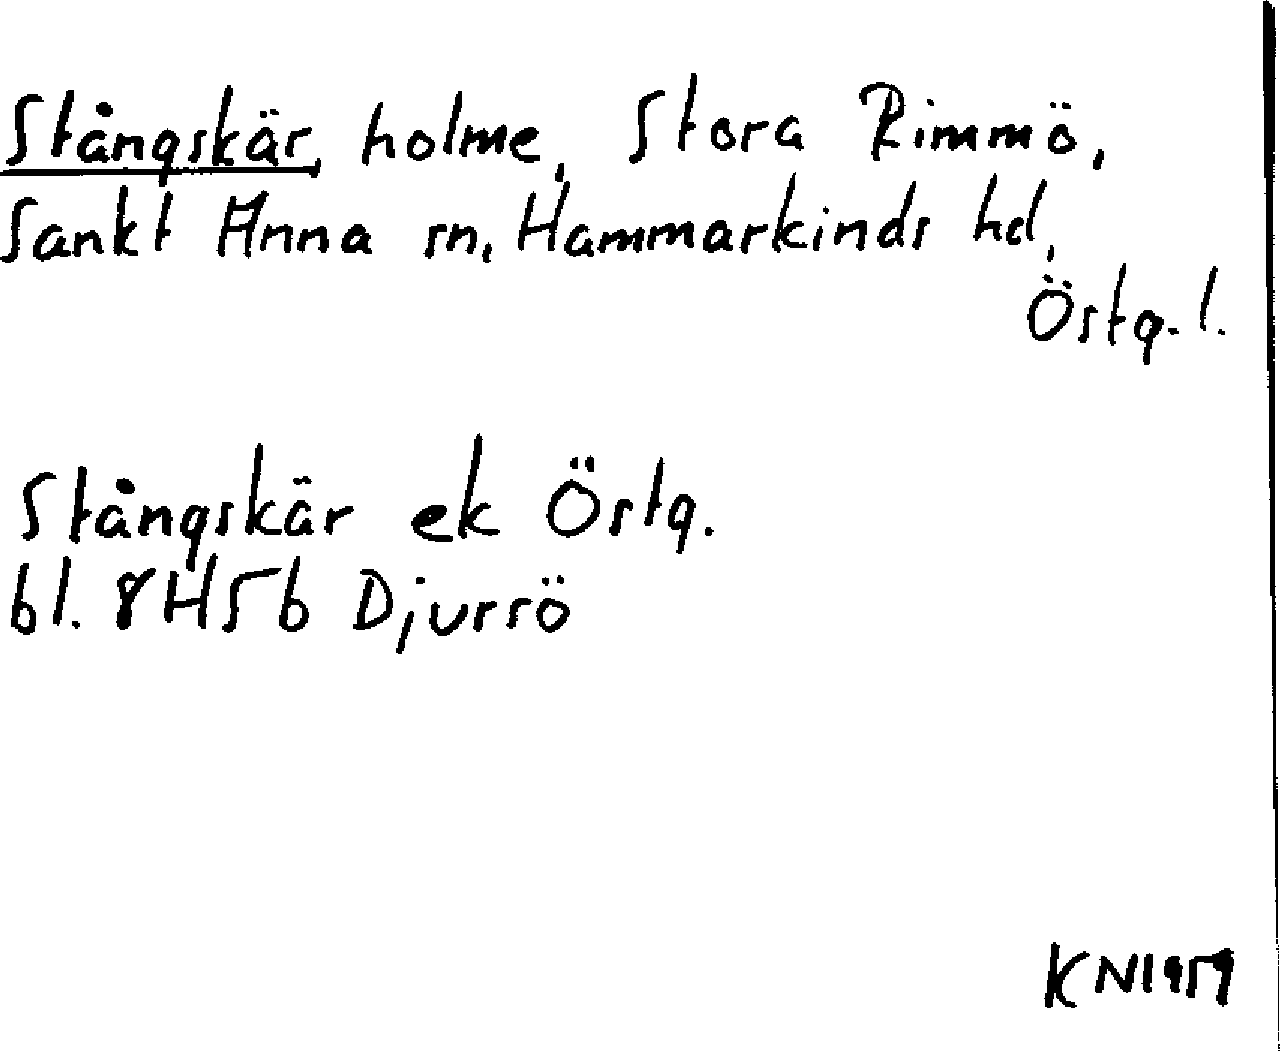 Stångskär, holme, Stora Rimmö,
Sankt Anna sn, Hammarkinds hd,
Östg. l.
Stångskär ek Östg.
bl. 8H5b Djursö
KN1959